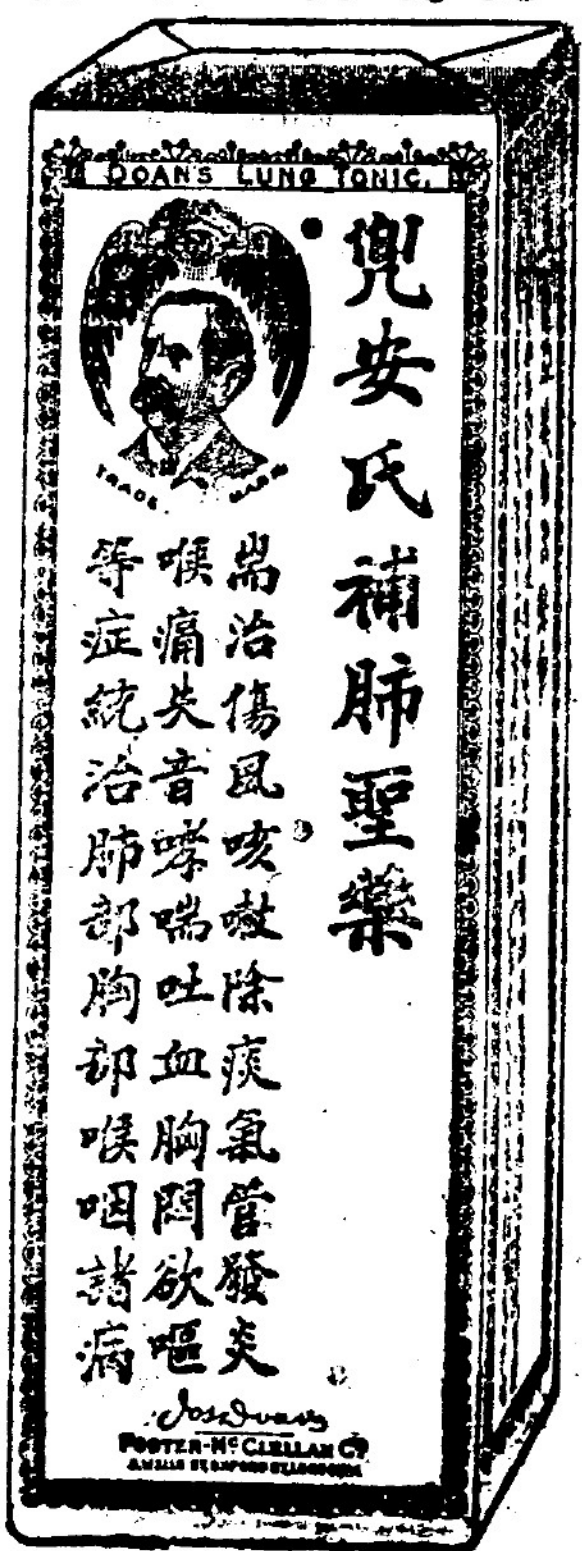 DOAN'S LUNG TONIC.
兜安氏補肺聖藥
TRADE MARK
耑治傷風咳嗽除痰氣管發炎
喉痛失音哮喘吐血胸悶欲嘔
等症統治肺部胸部喉咽諸病
Jos Doan
FOSTER-McCLELLAN Co